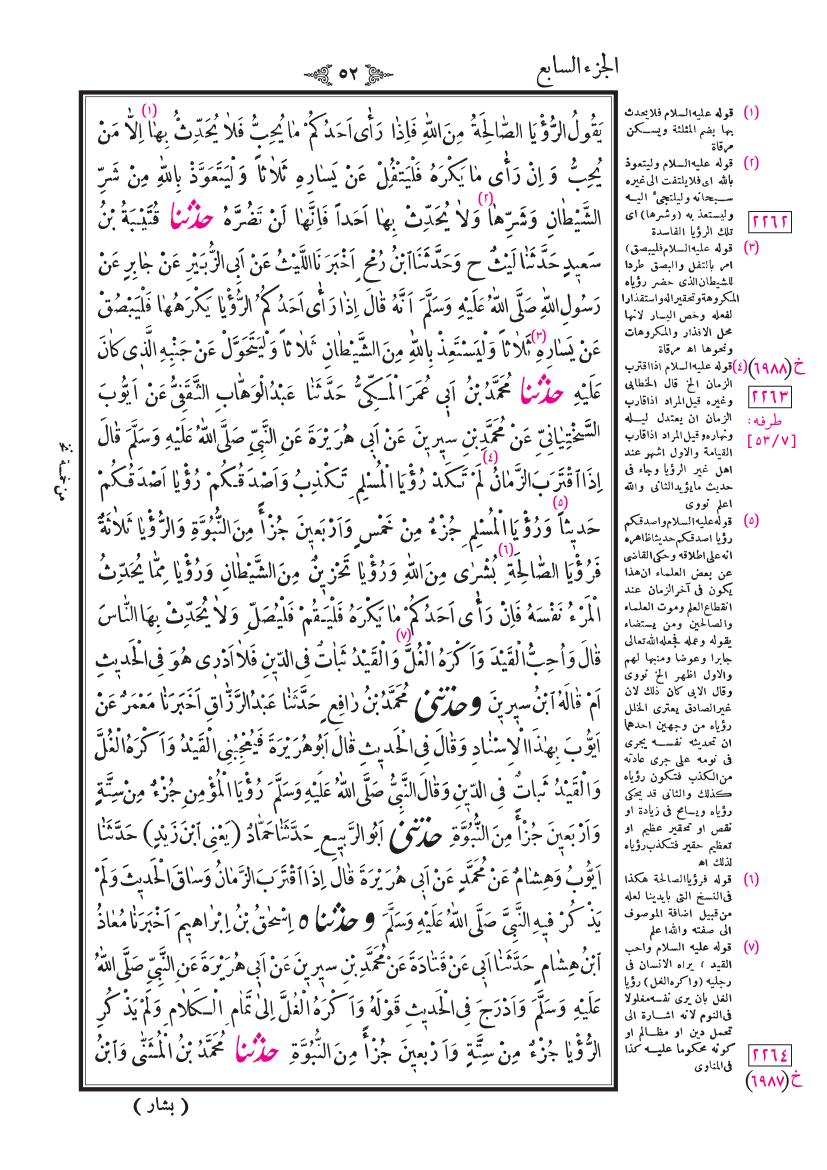 الجزء السابع
٥٢
يَقُولُ الرُّؤْيَا الصَّالِحَةُ مِنَ اللهِ فَاِذَا رَأَى اَحَدُكُمْ مَا يُحِبُّ فَلَا يُحَدِّثُ بِهَا (١) اِلَّا مَنْ
يُحِبُّ وَ اِنْ رَأَى مَا يَكْرَهُ فَلْيَتْفُلْ عَنْ يَسَارِهِ ثَلَاثاً وَلْيَتَعَوَّذْ بِاللهِ مِنْ شَرِّ
الشَّيْطَانِ وَشَرِّهَا (٢) وَلَا يُحَدِّثْ بِهَا اَحَداً فَاِنَّهَا لَنْ تَضُرَّهُ حدثنا قُتَيْبَةُ بْنُ
سَعِيدٍ حَدَّثَنَا لَيْثٌ ح وَحَدَّثَنَا ابْنُ رُمْحٍ اَخْبَرَنَا اللَّيْثُ عَنْ اَبِى الزُّبَيْرِ عَنْ جَابِرٍ عَنْ
رَسُولِ اللهِ صَلَّى اللهُ عَلَيْهِ وَسَلَّمَ اَنَّهُ قَالَ اِذَا رَأَى اَحَدُكُمُ الرُّؤْيَا يَكْرَهُهَا فَلْيَبْصُقْ
عَنْ يَسَارِهِ (٣) ثَلَاثاً وَلْيَسْتَعِذْ بِاللهِ مِنَ الشَّيْطَانِ ثَلَاثاً وَلْيَتَحَوَّلْ عَنْ جَنْبِهِ الَّذِى كَانَ
عَلَيْهِ حدثنا مُحَمَّدُ بْنُ اَبِى عُمَرَ الْمَكِّىُّ حَدَّثَنَا عَبْدُ الْوَهَّابِ الثَّقَفِىُّ عَنْ اَيُّوبَ
السَّخْتِيَانِىِّ عَنْ مُحَمَّدِ بْنِ سِيرِينَ عَنْ اَبِى هُرَيْرَةَ عَنِ النَّبِىِّ صَلَّى اللهُ عَلَيْهِ وَسَلَّمَ قَالَ
اِذَا اقْتَرَبَ الزَّمَانُ (٤) لَمْ تَكَدْ رُؤْيَا الْمُسْلِمِ تَكْذِبُ وَاَصْدَقُكُمْ رُؤْيَا اَصْدَقُكُمْ
حَدِيثاً (٥) وَرُؤْيَا الْمُسْلِمِ جُزْءٌ مِنْ خَمْسٍ وَاَرْبَعِينَ جُزْأً مِنَ النُّبُوَّةِ وَالرُّؤْيَا ثَلَاثَةٌ
فَرُؤْيَا الصَّالِحَةِ (٦) بُشْرَى مِنَ اللهِ وَرُؤْيَا تَحْزِينٌ مِنَ الشَّيْطَانِ وَرُؤْيَا مِمَّا يُحَدِّثُ
الْمَرْءُ نَفْسَهُ فَاِنْ رَأَى اَحَدُكُمْ مَا يَكْرَهُ فَلْيَقُمْ فَلْيُصَلِّ وَلَا يُحَدِّثْ بِهَا النَّاسَ
قَالَ وَاُحِبُّ الْقَيْدَ وَاَكْرَهُ الْغُلَّ (٧) وَالْقَيْدُ ثَبَاتٌ فِى الدِّينِ فَلَا اَدْرِى هُوَ فِى الْحَدِيثِ
اَمْ قَالَهُ ابْنُ سِيرِينَ وحدثنى مُحَمَّدُ بْنُ رَافِعٍ حَدَّثَنَا عَبْدُ الرَّزَّاقِ اَخْبَرَنَا مَعْمَرٌ عَنْ
اَيُّوبَ بِهٰذَا الْاِسْنَادِ وَقَالَ فِى الْحَدِيثِ قَالَ اَبُو هُرَيْرَةَ فَيُعْجِبُنِى الْقَيْدُ وَاَكْرَهُ الْغُلَّ
وَالْقَيْدُ ثَبَاتٌ فِى الدِّينِ وَقَالَ النَّبِىُّ صَلَّى اللهُ عَلَيْهِ وَسَلَّمَ رُؤْيَا الْمُؤْمِنِ جُزْءٌ مِنْ سِتَّةٍ
وَاَرْبَعِينَ جُزْأً مِنَ النُّبُوَّةِ حدثنى اَبُو الرَّبِيعِ حَدَّثَنَا حَمَّادٌ (يَعْنِى ابْنَ زَيْدٍ) حَدَّثَنَا
اَيُّوبُ وَهِشَامٌ عَنْ مُحَمَّدٍ عَنْ اَبِى هُرَيْرَةَ قَالَ اِذَا اقْتَرَبَ الزَّمَانُ وَسَاقَ الْحَدِيثَ وَلَمْ
يَذْكُرْ فِيهِ النَّبِىَّ صَلَّى اللهُ عَلَيْهِ وَسَلَّمَ وحدثنا ه اِسْحٰقُ بْنُ اِبْرَاهِيمَ اَخْبَرَنَا مُعَاذُ
ابْنُ هِشَامٍ حَدَّثَنَا اَبِى عَنْ قَتَادَةَ عَنْ مُحَمَّدِ بْنِ سِيرِينَ عَنْ اَبِى هُرَيْرَةَ عَنِ النَّبِىِّ صَلَّى اللهُ
عَلَيْهِ وَسَلَّمَ وَاَدْرَجَ فِى الْحَدِيثِ قَوْلَهُ وَاَكْرَهُ الْغُلَّ اِلَى تَمَامِ الْكَلَامِ وَلَمْ يَذْكُرِ
الرُّؤْيَا جُزْءٌ مِنْ سِتَّةٍ وَاَرْبَعِينَ جُزْأً مِنَ النُّبُوَّةِ حدثنا مُحَمَّدُ بْنُ الْمُثَنَّى وَابْنُ
( بشار )
(١) قوله عليه السلام فلا يحدث
بها بضم المثلثة ويسكن
مرقاة
(٢) قوله عليه السلام وليتعوذ
بالله اى فلا يلتفت الى غيره
سبحانه وليلتجئ اليه
وليستعذ به (وشرها) اى
تلك الرؤيا الفاسدة
(٣) قوله عليه السلام فليبصق
امر بالتفل والبصق طردا
للشيطان الذى حضر رؤياه
المكروهة وتحقيرا له واستقذارا
لفعله وخص اليسار لانها
محل الاقذار والمكروهات
ونحوها اه مرقاة
(٤) قوله عليه السلام اذا اقترب
الزمان الخ قال الخطابى
وغيره قيل المراد اذا قارب
الزمان ان يعتدل ليله
ونهاره وقيل المراد اذا قارب
القيامة والاول اشهر عند
اهل غير الرؤيا وجاء فى
حديث ما يؤيد الثانى والله
اعلم نووى
(٥) قوله عليه السلام واصدقكم
رؤيا اصدقكم حديثا ظاهره
انه على اطلاقه وحكى القاضى
عن بعض العلماء ان هذا
يكون فى آخر الزمان عند
انقطاع العلم وموت العلماء
والصالحين ومن يستضاء
بقوله وعمله فجعله الله تعالى
جابرا وعوضا ومنبها لهم
والاول اظهر الخ نووى
وقال الابى كان ذلك لان
غير الصادق يعترى الخلل
رؤياه من وجهين احدهما
ان تحديثه نفسه يجرى
فى نومه على جرى عادته
من الكذب فتكون رؤياه
كذلك والثانى قد يحكى
رؤياه ويسامح فى زيادة او
نقص او تحقير عظيم او
تعظيم حقير فتكذب رؤياه
لذلك اه
(٦) قوله فرؤيا الصالحة هكذا
فى النسخ التى بايدينا لعله
من قبيل اضافة الموصوف
الى صفته والله اعلم
(٧) قوله عليه السلام واحب
القيد ) يراه الانسان فى
رجليه (واكره الغل) رؤيا
الغل بان يرى نفسه مغلولا
فى النوم لانه اشارة الى
تحمل دين او مظالم او
كونه محكوما عليه كذا
فى المناوى
٢٢٦٢
خ (٦٩٨٨)
٢٢٦٣
طرفه:
[٥٣/٧]
٢٢٦٤
خ (٦٩٨٧)